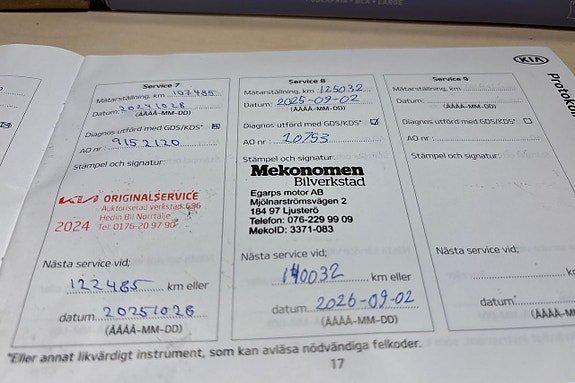 KIA
Service 7
Mätarställning, km 107485
Datum: 20241028
(ÅÅÅÅ-MM-DD)
Diagnos utförd med GDS/KDS*
AO nr 9152120
Stämpel och signatur:
KIA ORIGINALSERVICE
Auktoriserad verkstad 696
Hedin Bil Norrtälje
2024 Tel: 0176-20 97 90
Nästa service vid;
122485 km eller
datum 20251028
(ÅÅÅÅ-MM-DD)
Service 8
Mätarställning, km 125032
Datum: 2025-09-02
(ÅÅÅÅ-MM-DD)
Diagnos utförd med GDS/KDS*
AO nr: 10753
Stämpel och signatur:
Mekonomen
Bilverkstad
Egarps motor AB
Mjölnarströmsvägen 2
184 97 Ljusterö
Telefon: 076-229 99 09
MekoID: 3371-083
Nästa service vid;
140032 km eller
datum 2026-09-02
(ÅÅÅÅ-MM-DD)
Service 9
Mätarställning, km
Datum:
(ÅÅÅÅ-MM-DD)
Diagnos utförd med GDS/KDS*
AO nr :
Stämpel och signatur:
Nästa service vid;
km
datum
(ÅÅÅÅ-MM
*Eller annat likvärdigt instrument, som kan avläsa nödvändiga felkoder.
17